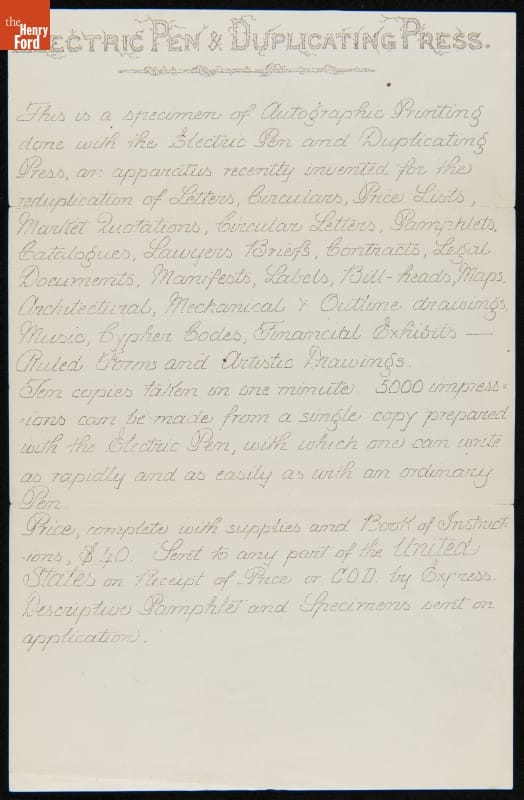 the
Henry
Ford
ELECTRIC PEN & DUPLICATING PRESS.
This is a specimen of Autographic Printing
done with the Electric Pen and Duplicating
Press, an apparatus recently invented for the
reduplication of Letters, Circulars, Price Lists,
Market Quotations, Circular Letters, Pamphlets,
Catalogues, Lawyers Briefs, Contracts, Legal
Documents, Manifests, Labels, Bill-heads, Maps,
Architectural, Mechanical & Outline drawings,
Music, Cypher Codes, Financial Exhibits —
Ruled Forms and Artistic Drawings.
Ten copies taken in one minute 5000 impress=
=ions can be made from a single copy prepared
with the Electric Pen, with which one can write
as rapidly and as easily as with an ordinary
Pen.
Price, complete with supplies and Book of Instruct
ions, $40. Sent to any part of the United
States on Receipt of Price or C.O.D. by Express.
Descriptive Pamphlet and Specimens sent on
application.